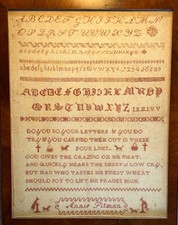 ABCDEFGHIJKLMN
OPQRSTUVWXYZ
abcdefghijklmnopqrstuvwxyz
abcdefghijklmnopqrstuvwxyz 12345678910
ABCDEFGHIJKLMNOP
QRSTUVWXYZ
DO YOU DO YOUR LETTERS IF YOU DO
THEM YOU CAN FIND THEM OUT IN THESE
FOUR LINES
GOD GIVES THE GRAZING OX HIS MEAT
AND QUICKLY HEARS THE SHEEPS LOW CRY
BUT MAN WHO TASTES HIS FINEST WHEAT
SHOULD JOY TO LIFT HIS PRAISES HIGH
Annie Pitman